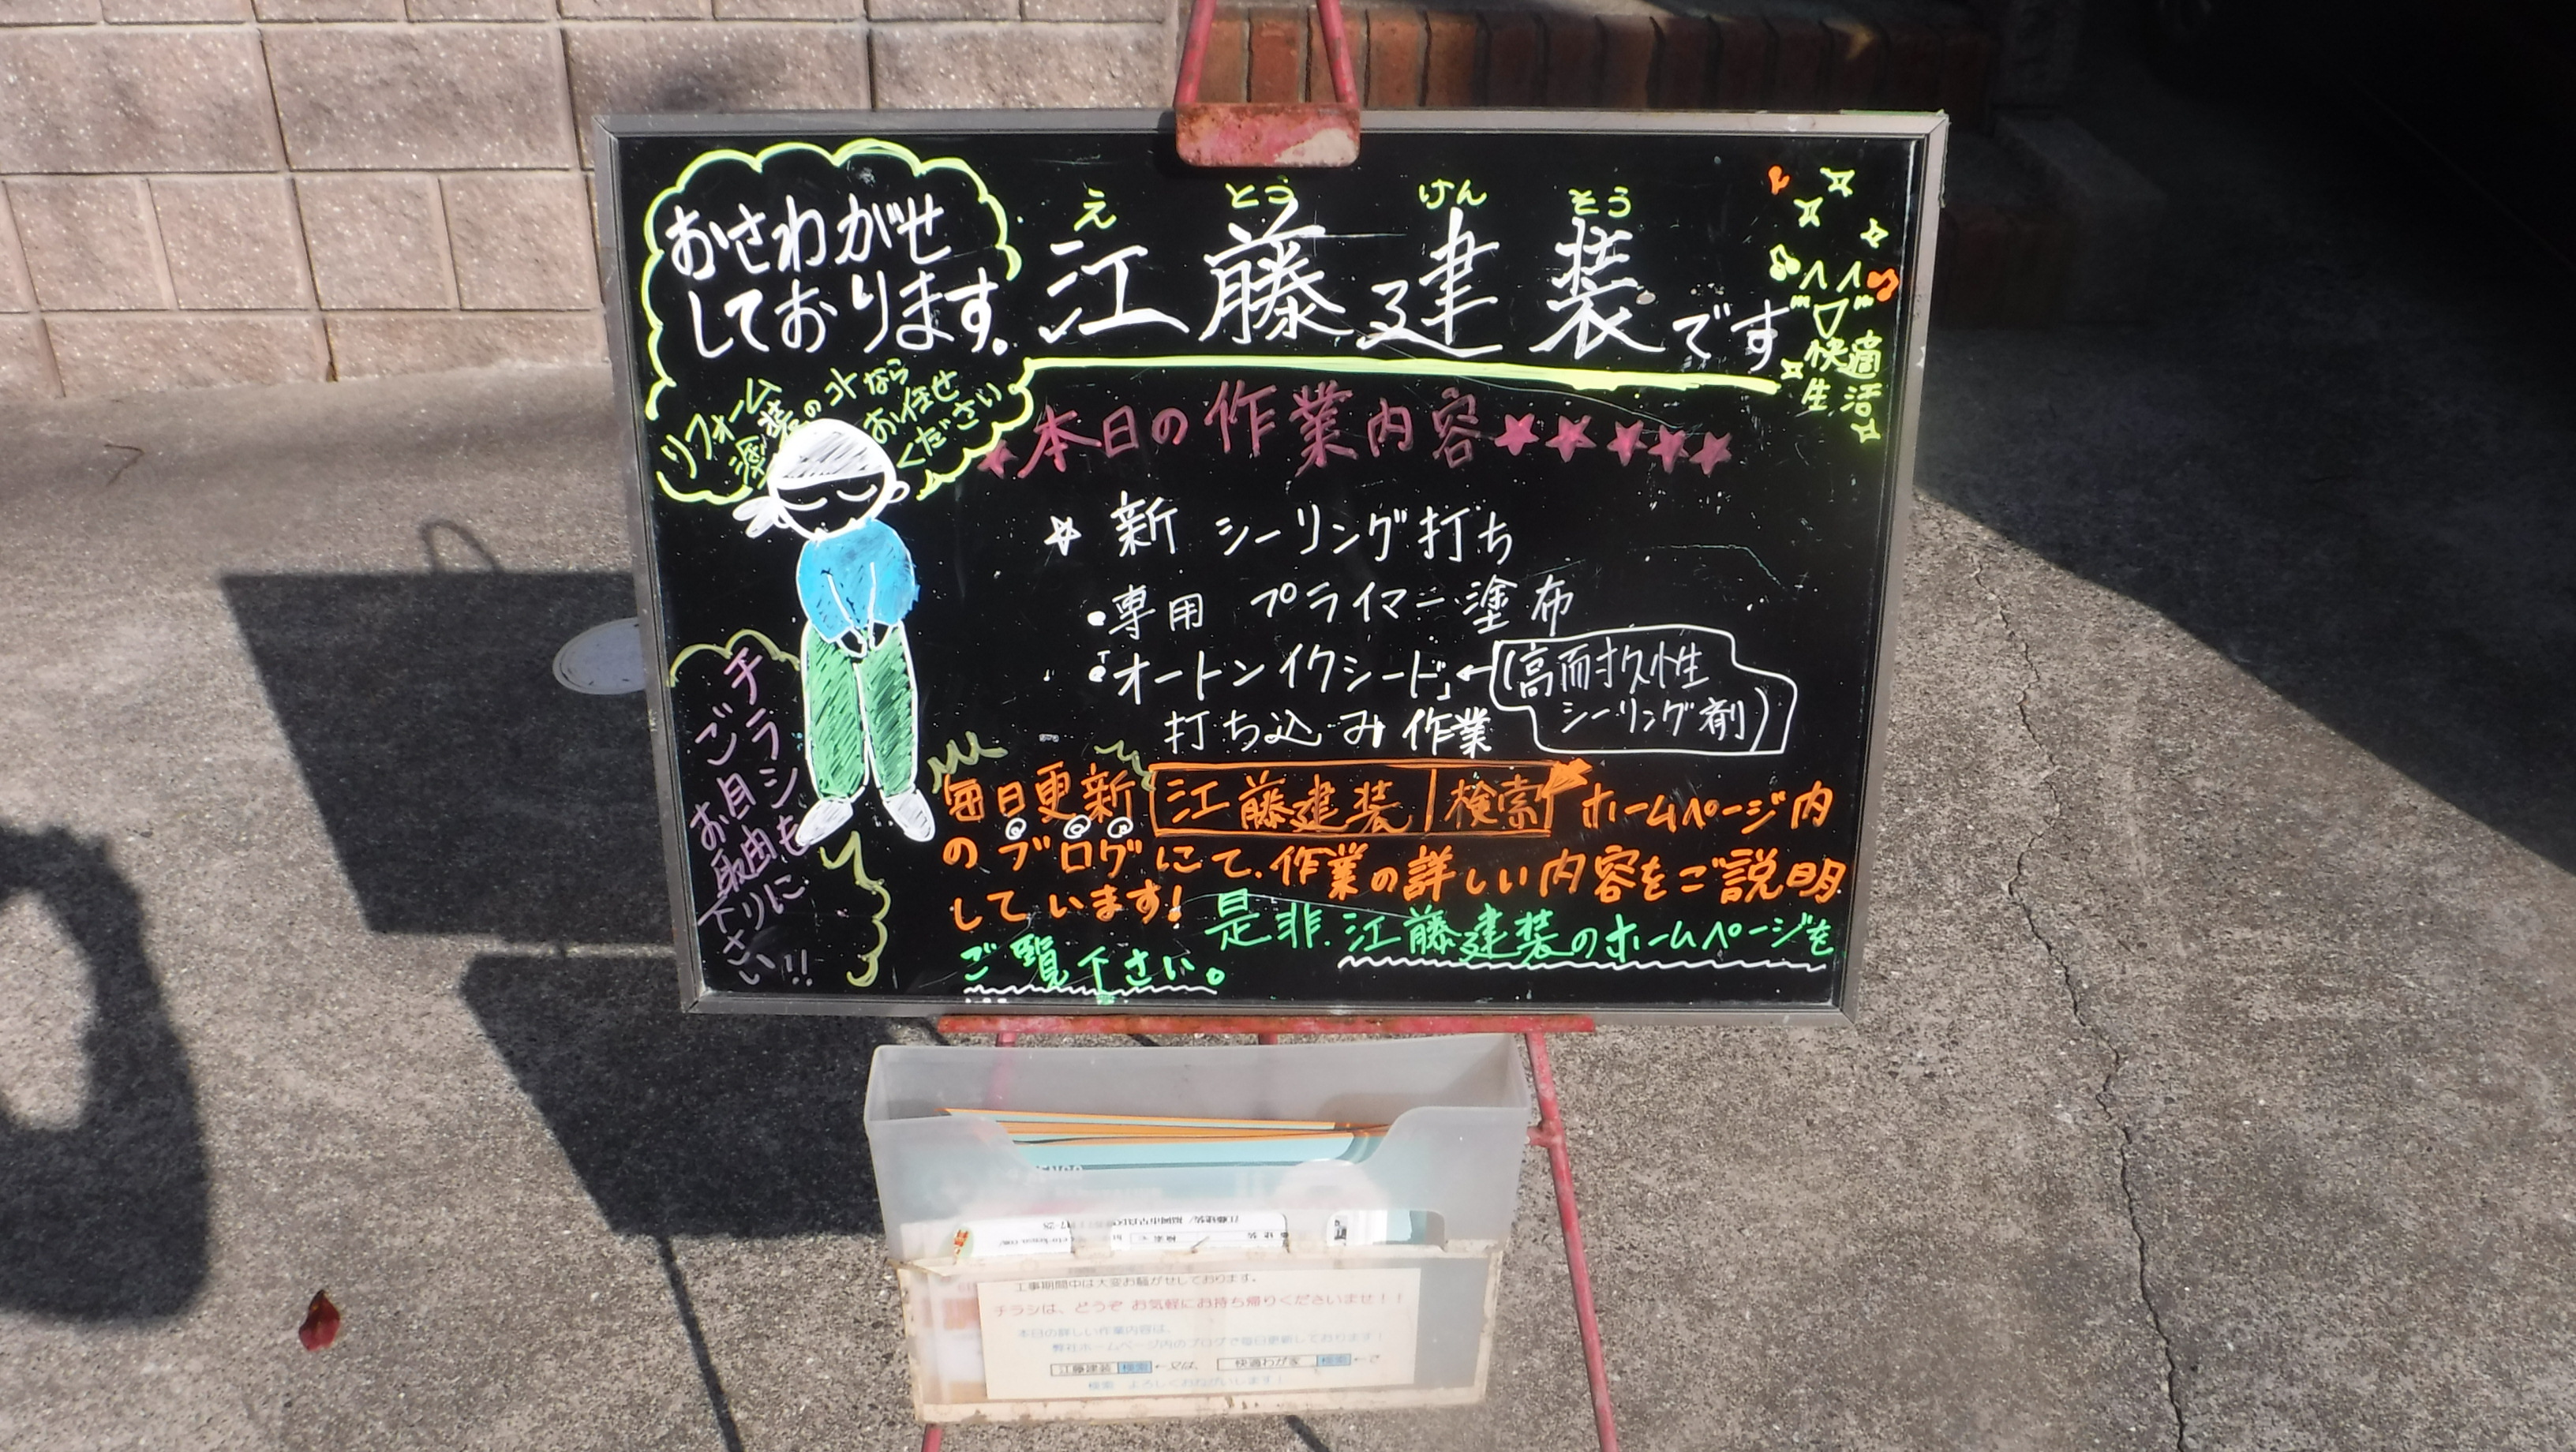 おさわがせ
しております。
リフォーム
塗装のコトなら
お任せ
ください
え とう けん そう
江藤建装です
快適
生活
本日の作業内容
新 シーリング打ち
・専用 プライマー塗布
・「オートンイクシード」←(高耐久性
シーリング剤)
打ち込み作業
チラシも
ご自由に
お取り
下さい!!
毎日更新 江藤建装 検索 ホームページ内
のブログにて、作業の詳しい内容をご説明
しています!
是非、江藤建装のホームページを
ご覧下さい。
工事期間中は大変お騒がせしております。
チラシは、どうぞ お気軽にお持ち帰りくださいませ!!
本日の詳しい作業内容は、
弊社ホームページ内のブログで毎日更新しております!
江藤建装 検索 ←又は、 快適わが家 検索 ←で
検索 よろしくおねがいします!